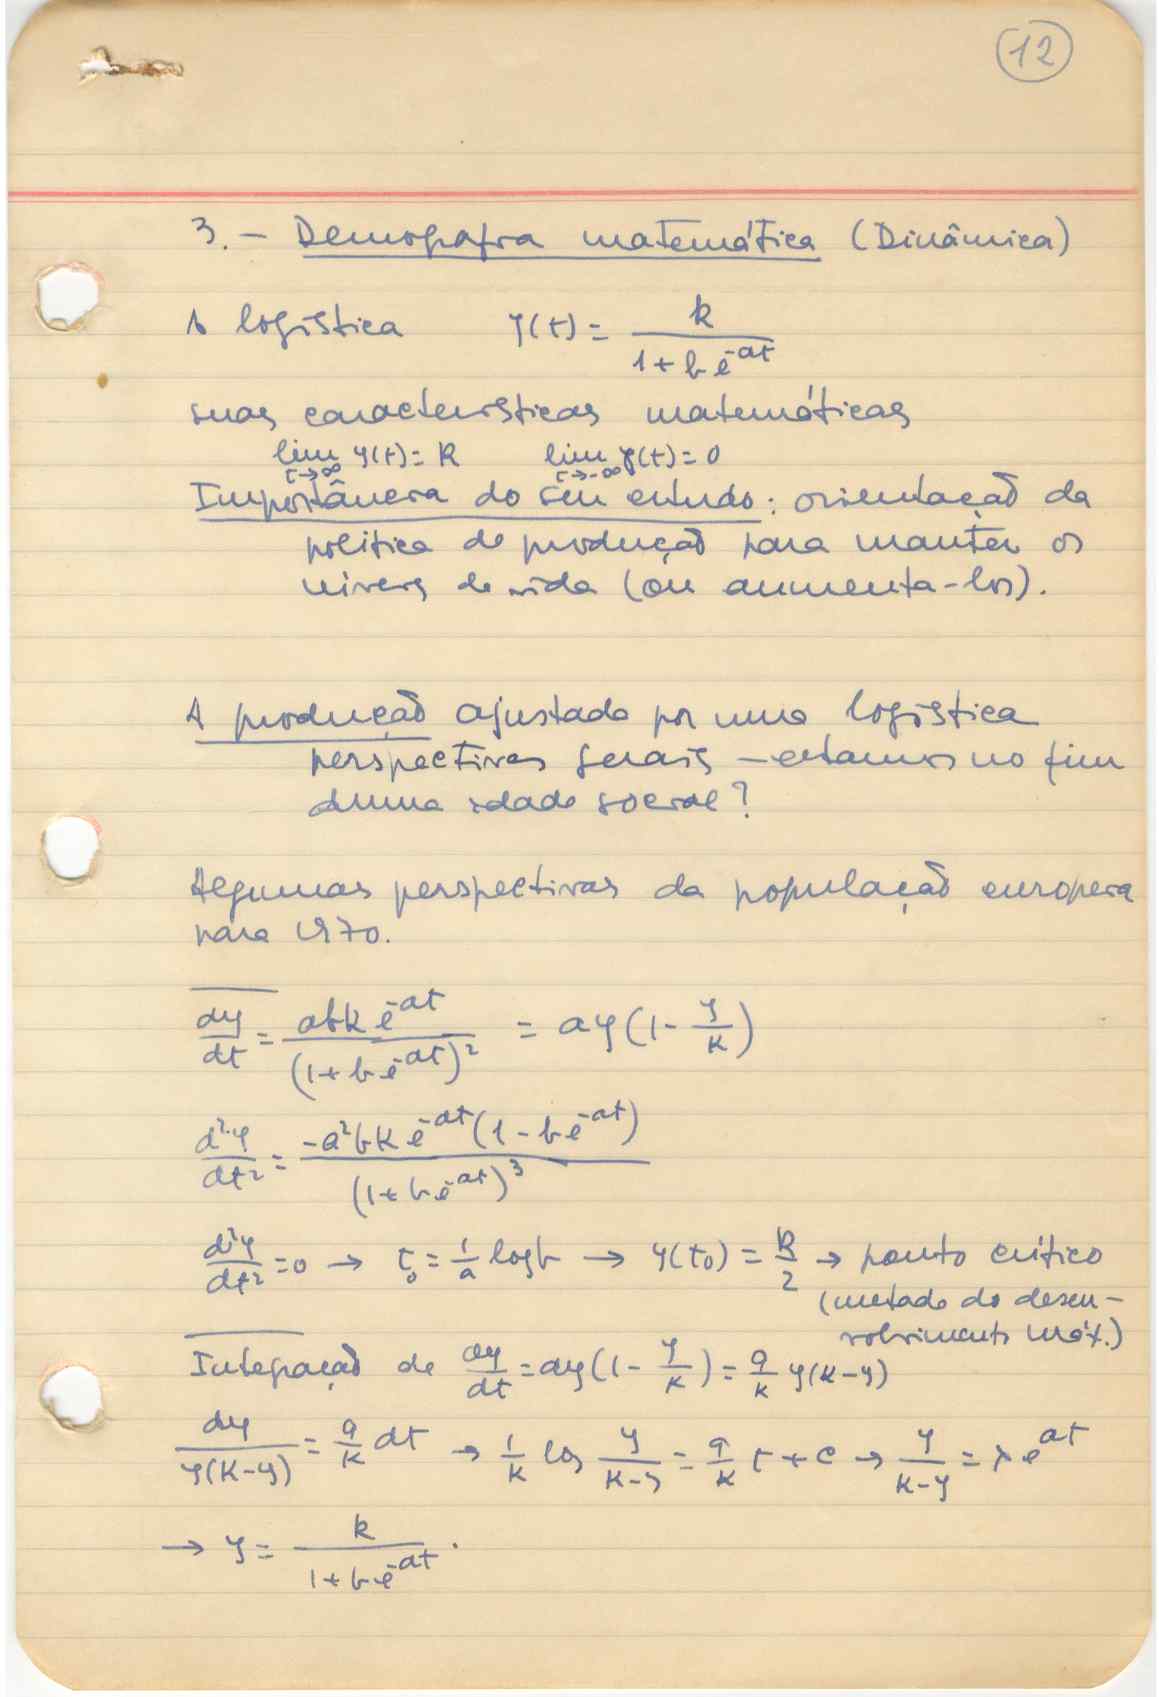 12
3. – Demografia matemática (Dinâmica)
A logística y(t) = k / (1 + b e^{-at})
suas características matemáticas
lim_{t→∞} y(t) = k lim_{t→-∞} y(t) = 0
Importância do seu estudo: orientação da
política de produção para manter os
níveis de vida (ou aumenta-los).
A produção ajustada por uma logística
perspectivas gerais – estamos no fim
duma idade social?
Algumas perspectivas da população europeia
para 1970.
dy/dt = abk e^{-at} / (1 + b e^{-at})² = ay(1 - y/k)
d²y/dt² = -a²bk e^{-at}(1 - b e^{-at}) / (1 + b e^{-at})³
d²y/dt² = 0 → t₀ = 1/a log b → y(t₀) = k/2 → ponto crítico
(metade do desen-
volvimento máx.)
Integração de dy/dt = ay(1 - y/k) = a/k y(k-y)
dy / y(k-y) = a/k dt → 1/k log y/(k-y) = a/k t + c → y/(k-y) = λ e^{at}
→ y = k / (1 + b e^{-at}).